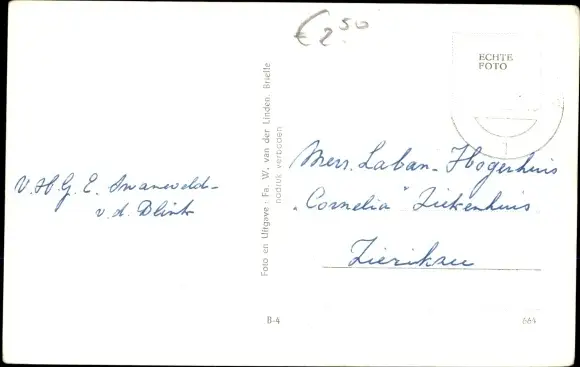 € 2.50
ECHTE
FOTO
V. H. G. E.
v. d. Blink
Foto en Uitgave: Fa. W. van der Linden, Brielle
nadruk verboden
Mevr. Laban-Hogerhuis
„Cornelia" Ziekenhuis
Zierikzee
B-4
664
1